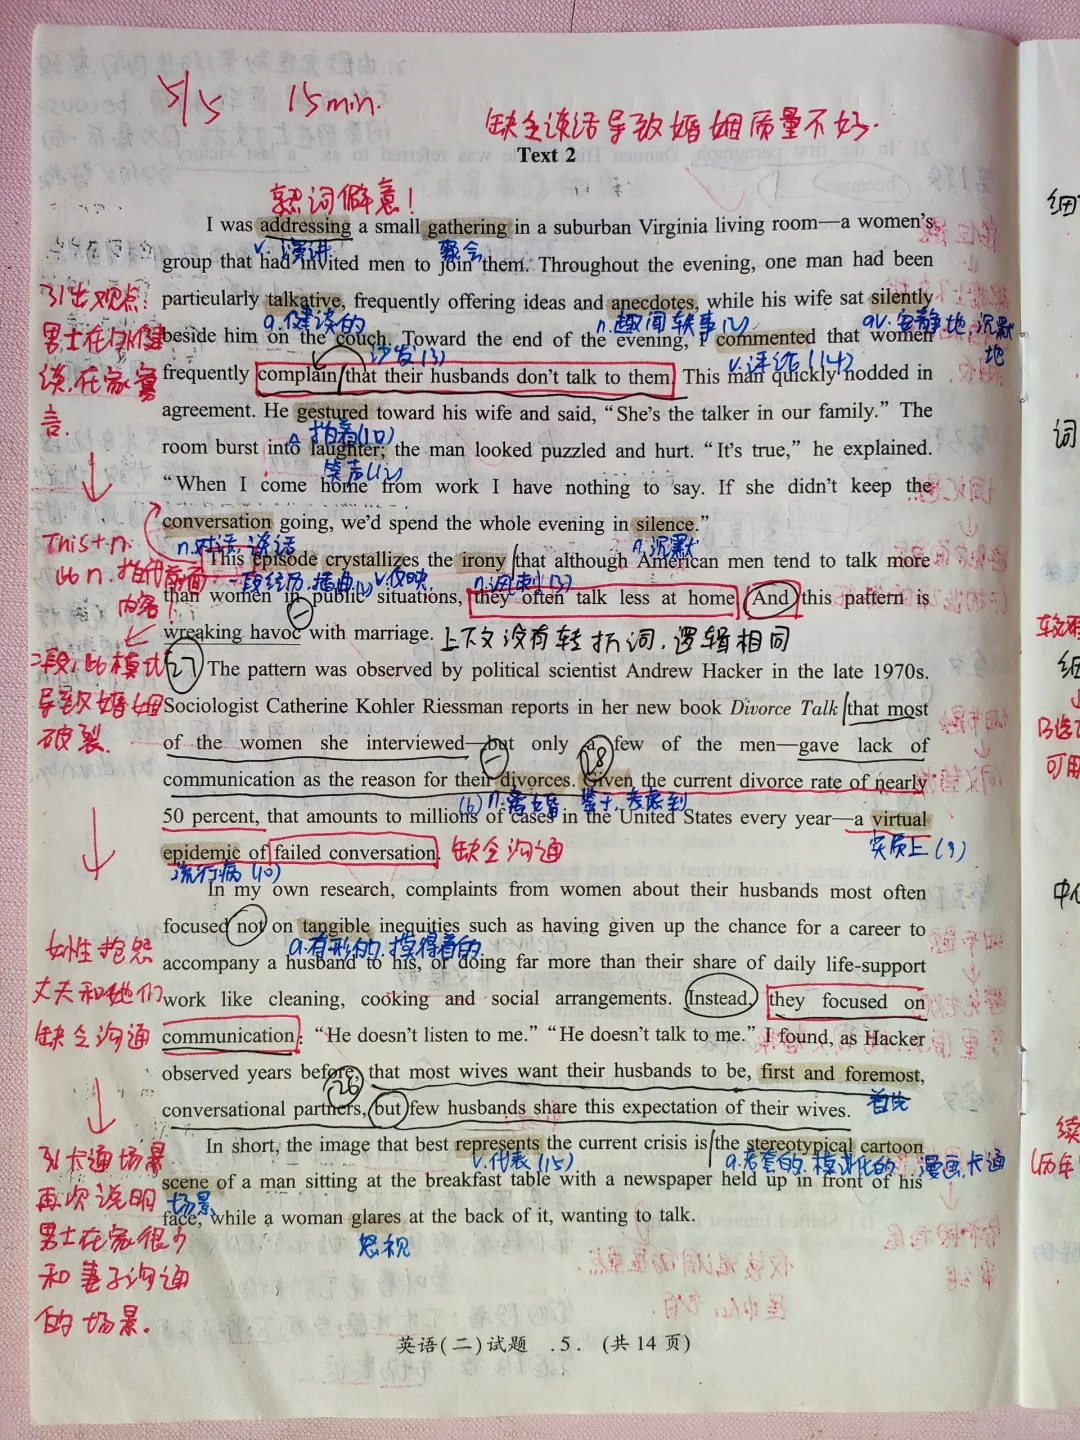 5/5 15min.
缺乏谈话导致婚姻质量不好.
Text 2
熟词僻意!
I was addressing a small gathering in a suburban Virginia living room—a women's
v. 演讲 聚会
group that had invited men to join them. Throughout the evening, one man had been
particularly talkative, frequently offering ideas and anecdotes, while his wife sat silently
a.健谈的 n.趣闻轶事(2) av.安静地,沉默地
beside him on the couch. Toward the end of the evening, I commented that women
沙发(3) v.评论(14)
frequently complain that their husbands don't talk to them. This man quickly nodded in
agreement. He gestured toward his wife and said, "She's the talker in our family." The
room burst into laughter; the man looked puzzled and hurt. "It's true," he explained.
笑声(12)
"When I come home from work I have nothing to say. If she didn't keep the
conversation going, we'd spend the whole evening in silence."
n.对话,谈话 n.沉默
This episode crystallizes the irony that although American men tend to talk more
一段经历,插曲 v.反映 n.讽刺(3)
than women in public situations, they often talk less at home. And this pattern is
wreaking havoc with marriage.
上下文没有转折词,逻辑相同
27
The pattern was observed by political scientist Andrew Hacker in the late 1970s.
Sociologist Catherine Kohler Riessman reports in her new book Divorce Talk that most
of the women she interviewed—but only a few of the men—gave lack of
28
communication as the reason for their divorces. Given the current divorce rate of nearly
(6) n.离婚 鉴于,考虑到
50 percent, that amounts to millions of cases in the United States every year—a virtual
实质上(9)
epidemic of failed conversation. 缺乏沟通
流行病(10)
In my own research, complaints from women about their husbands most often
focused not on tangible inequities such as having given up the chance for a career to
a.有形的,摸得着的
accompany a husband to his, or doing far more than their share of daily life-support
work like cleaning, cooking and social arrangements. Instead, they focused on
communication: "He doesn't listen to me." "He doesn't talk to me." I found, as Hacker
observed years before, that most wives want their husbands to be, first and foremost,
26 首先
conversational partners, but few husbands share this expectation of their wives.
In short, the image that best represents the current crisis is the stereotypical cartoon
v.代表(15) a.老套的,模式化的 漫画,卡通
scene of a man sitting at the breakfast table with a newspaper held up in front of his
场景
face, while a woman glares at the back of it, wanting to talk.
怒视
引出观点:
男士在外健
谈,在家寡
言.
This+n.
此n.指代前面
内容!
2段,此模式
导致婚姻
破裂.
女性抱怨
丈夫和他们
缺乏沟通
引卡通场景
再次说明
男士在家很少
和妻子沟通
的场景.
英语(二)试题 .5. (共14页)